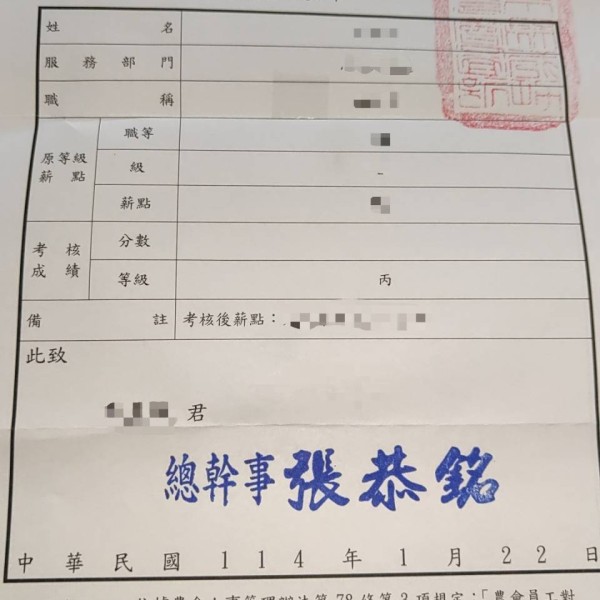 姓名
服務部門
職稱
原等級薪點
職等
級
-
薪點
考核成績
分數
等級
丙
備註
考核後薪點：
此致
君
總幹事 張恭銘
中華民國114年1月22日
農會人事管理辦法第78條第3項規定：「農會員工對